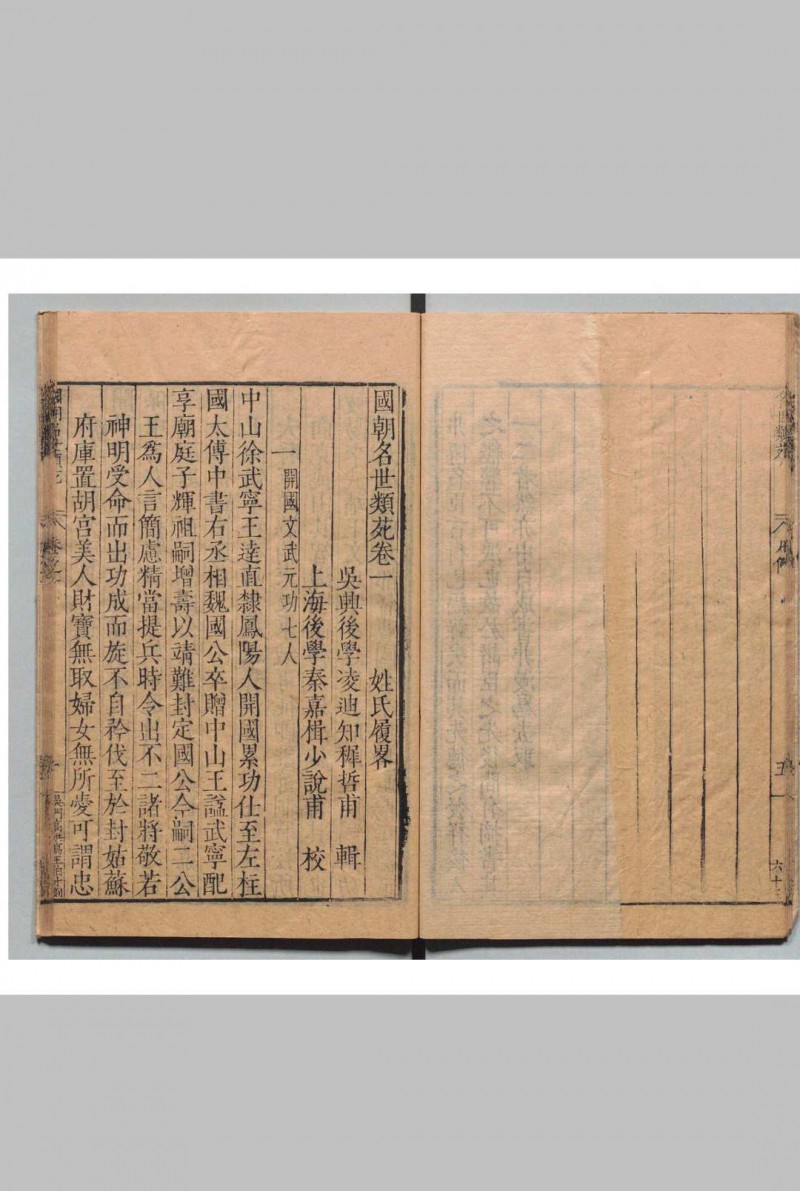 國朝名世類苑卷一　姓氏履畧
吳興後學凌迪知穉哲甫　輯
上海後學秦嘉楫少說甫　校
一　開國文武元功七人
中山徐武寧王達直隸鳳陽人開國累功仕至左柱
國太傅中書右丞相魏國公卒贈中山王謚武寧配
享廟庭子輝祖嗣增壽以靖難封定國公今嗣二公
王爲人言簡慮精當提兵時令出不二諸將敬若
神明受命而出功成而旋不自矜伐至於封姑蘇
府庫置胡宮美人財寶無取婦女無所愛可謂忠
五
六十三